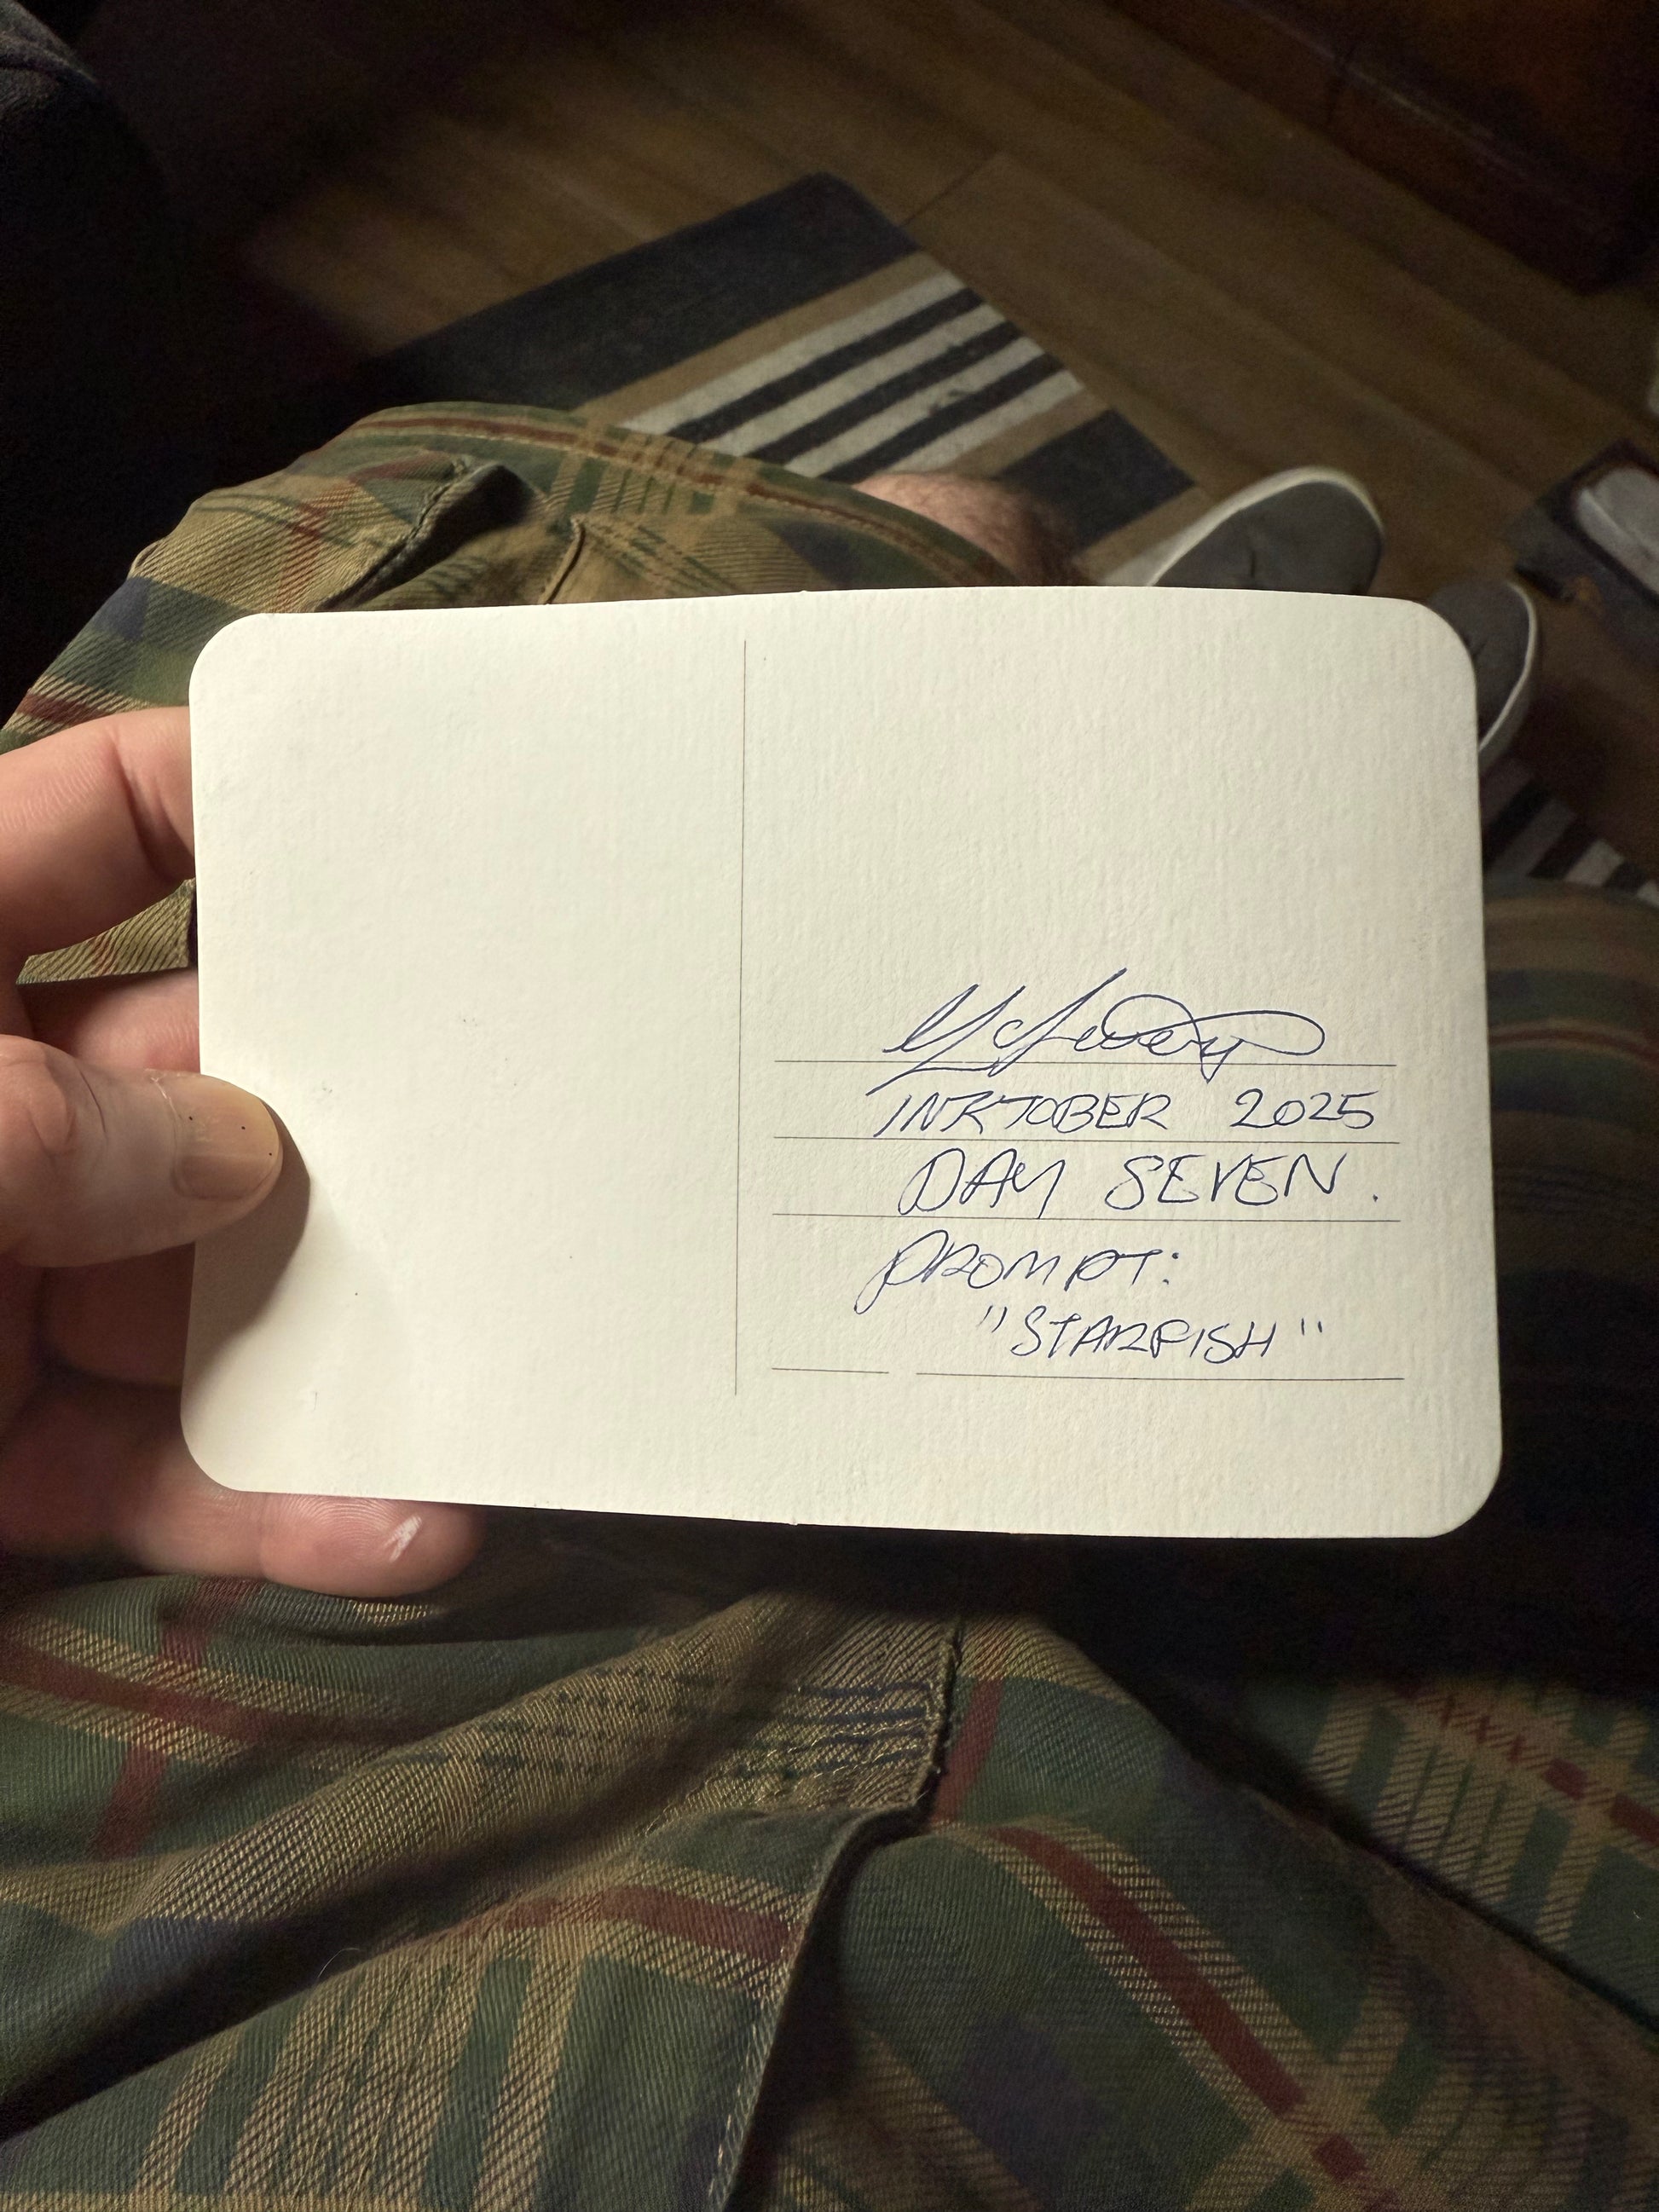 INKTOBER 2025
DAY SEVEN.
PROMPT:
"STARFISH"